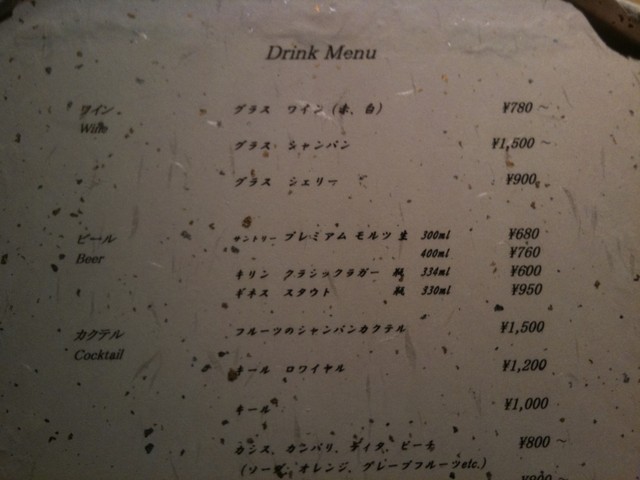 Drink Menu
ワイン グラス ワイン (赤、白) ¥780 ~
Wine
グラス シャンパン ¥1,500 ~
グラス シェリー ¥900
ビール サントリー プレミアム モルツ 生 300ml ¥680
Beer 400ml ¥760
キリン クラシックラガー 瓶 334ml ¥600
ギネス スタウト 瓶 330ml ¥950
カクテル フルーツのシャンパンカクテル ¥1,500
Cocktail
キール ロワイヤル ¥1,200
キール ¥1,000
カシス、カンパリ、ディタ、ピーチ ¥800 ~
(ソーダ、オレンジ、グレープフルーツetc.)